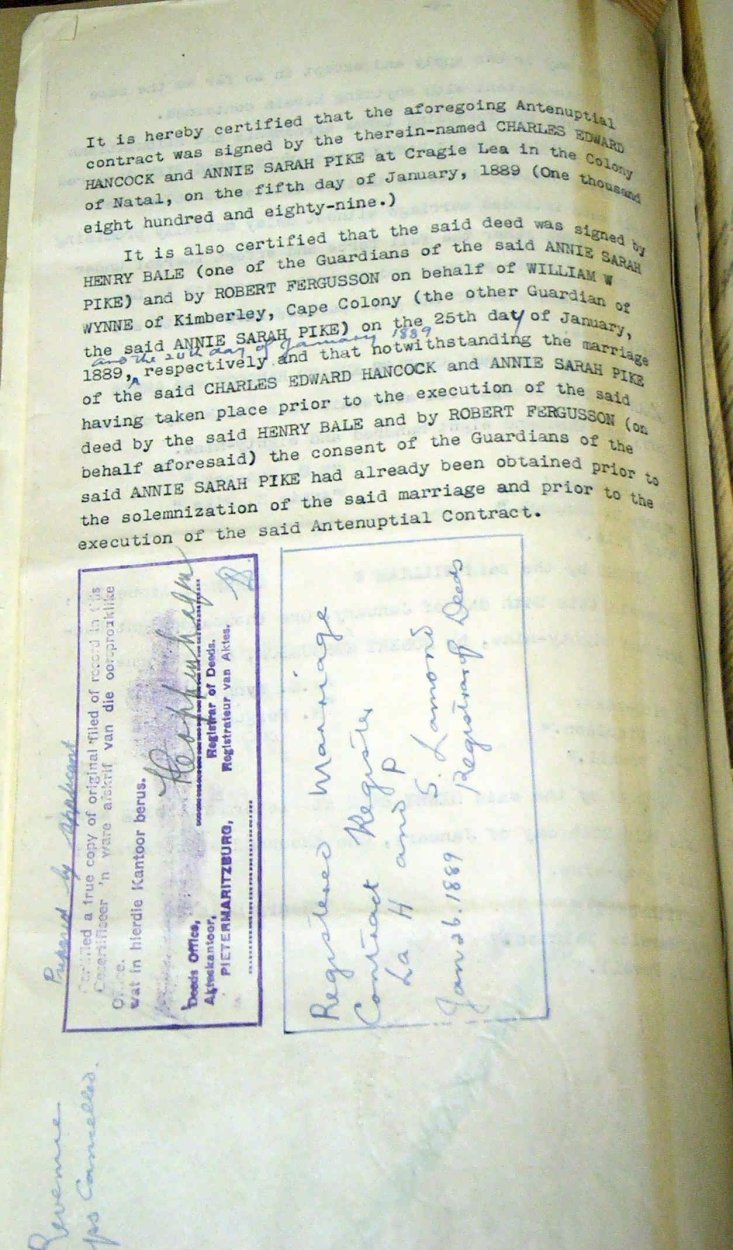 It is hereby certified that the aforegoing Antenuptial
contract was signed by the therein-named CHARLES EDWARD
HANCOCK and ANNIE SARAH PIKE at Cragie Lea in the Colony
of Natal, on the fifth day of January, 1889 (One thousand
eight hundred and eighty-nine.)
It is also certified that the said deed was signed by
HENRY BALE (one of the Guardians of the said ANNIE SARAH
PIKE) and by ROBERT FERGUSSON on behalf of WILLIAM W
WYNNE of Kimberley, Cape Colony (the other Guardian of
the said ANNIE SARAH PIKE) on the 25th day of January,
and the 26th day of January 1889
1889, respectively and that notwithstanding the marriage
of the said CHARLES EDWARD HANCOCK and ANNIE SARAH PIKE
having taken place prior to the execution of the said
deed by the said HENRY BALE and by ROBERT FERGUSSON (on
behalf aforesaid) the consent of the Guardians of the
said ANNIE SARAH PIKE had already been obtained prior to
the solemnization of the said marriage and prior to the
execution of the said Antenuptial Contract.
Prepared by Applicant
Certified a true copy of original filed of record in this
Gesertifiseer 'n ware afskrif van die oorspronklike
Office.
wat in hierdie Kantoor berus.
Deeds Office,
Registrar of Deeds.
Aktekantoor,
Registrateur van Aktes.
PIETERMARITZBURG,
Registered Marriage
Contract Register
La H and P
S. Lamond
Jan 26. 1889 Registrar of Deeds
Revenue
Cancelled.